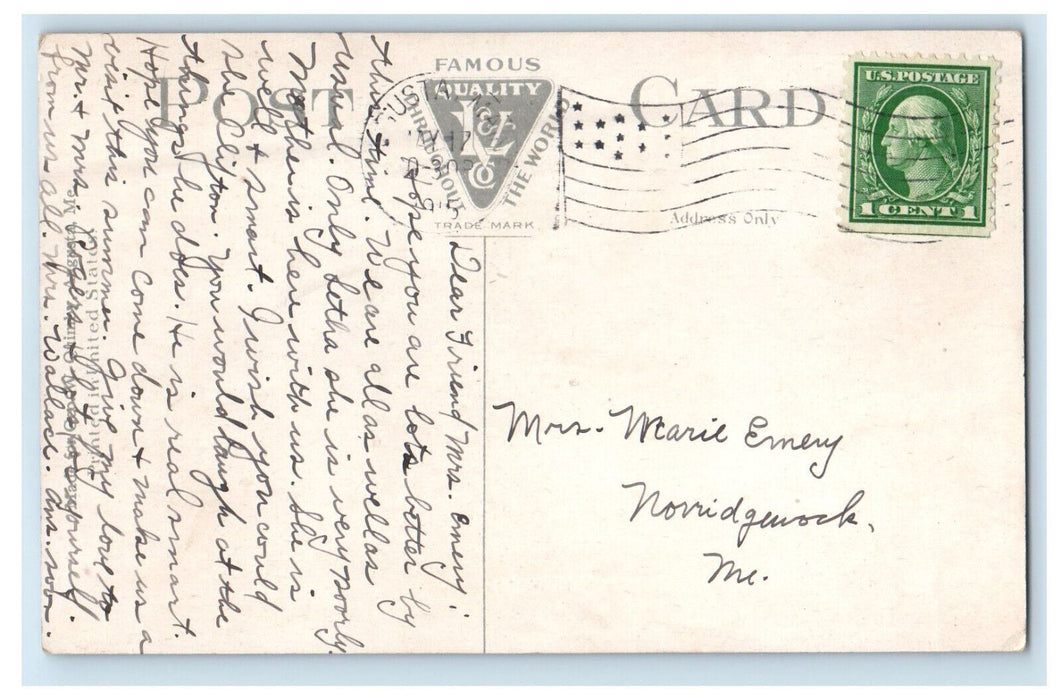 POST CARD
FAMOUS
QUALITY
K Co
THE WORLD
TRADE MARK
Address Only
U.S. POSTAGE
1 CENT 1
Dear Friend Mrs. Emery:
Hope you are lots better by
this time. We are all as well as
usual. Only Letha she is very poorly.
Mother is here with us. She is
well & smart. I wish you could
see Clifton. You would laugh at the
things he does. He is real smart.
Hope you can come down & make us a
visit this summer. Give my love to
Mr. & Mrs. & lots to yourself
from us all. Mrs. Wallace. Ans. soon.
Printed in United States
Mrs. Marie Emery
Norridgewock,
Me.